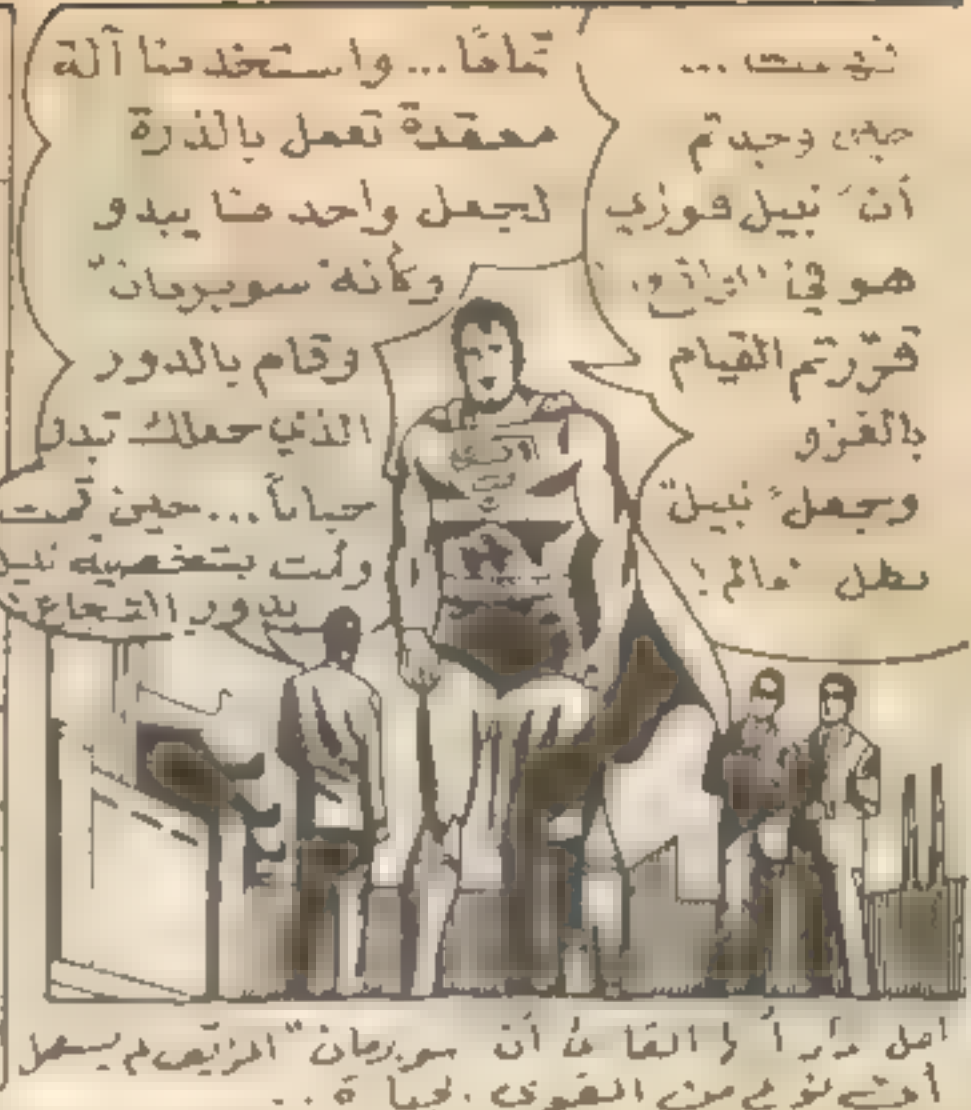 فهمت ...
حين وجدتم
أن نبيل فوزي
هو في
قررتم القيام
بالغزو
وجعل نبيل
بطل
تمامًا... واستخدمنا آلة
معقدة تعمل بالذرة
لجعل واحد منا يبدو
وكأنه سوبرمان
وقام بالدور
الذي جعلك تبدو
جبانًا... حين قمت
وأنت بشخصية نبيل
بدور الشجاع
أن سوبرمان" المزيف لم يستعمل
أي نوع من القوى